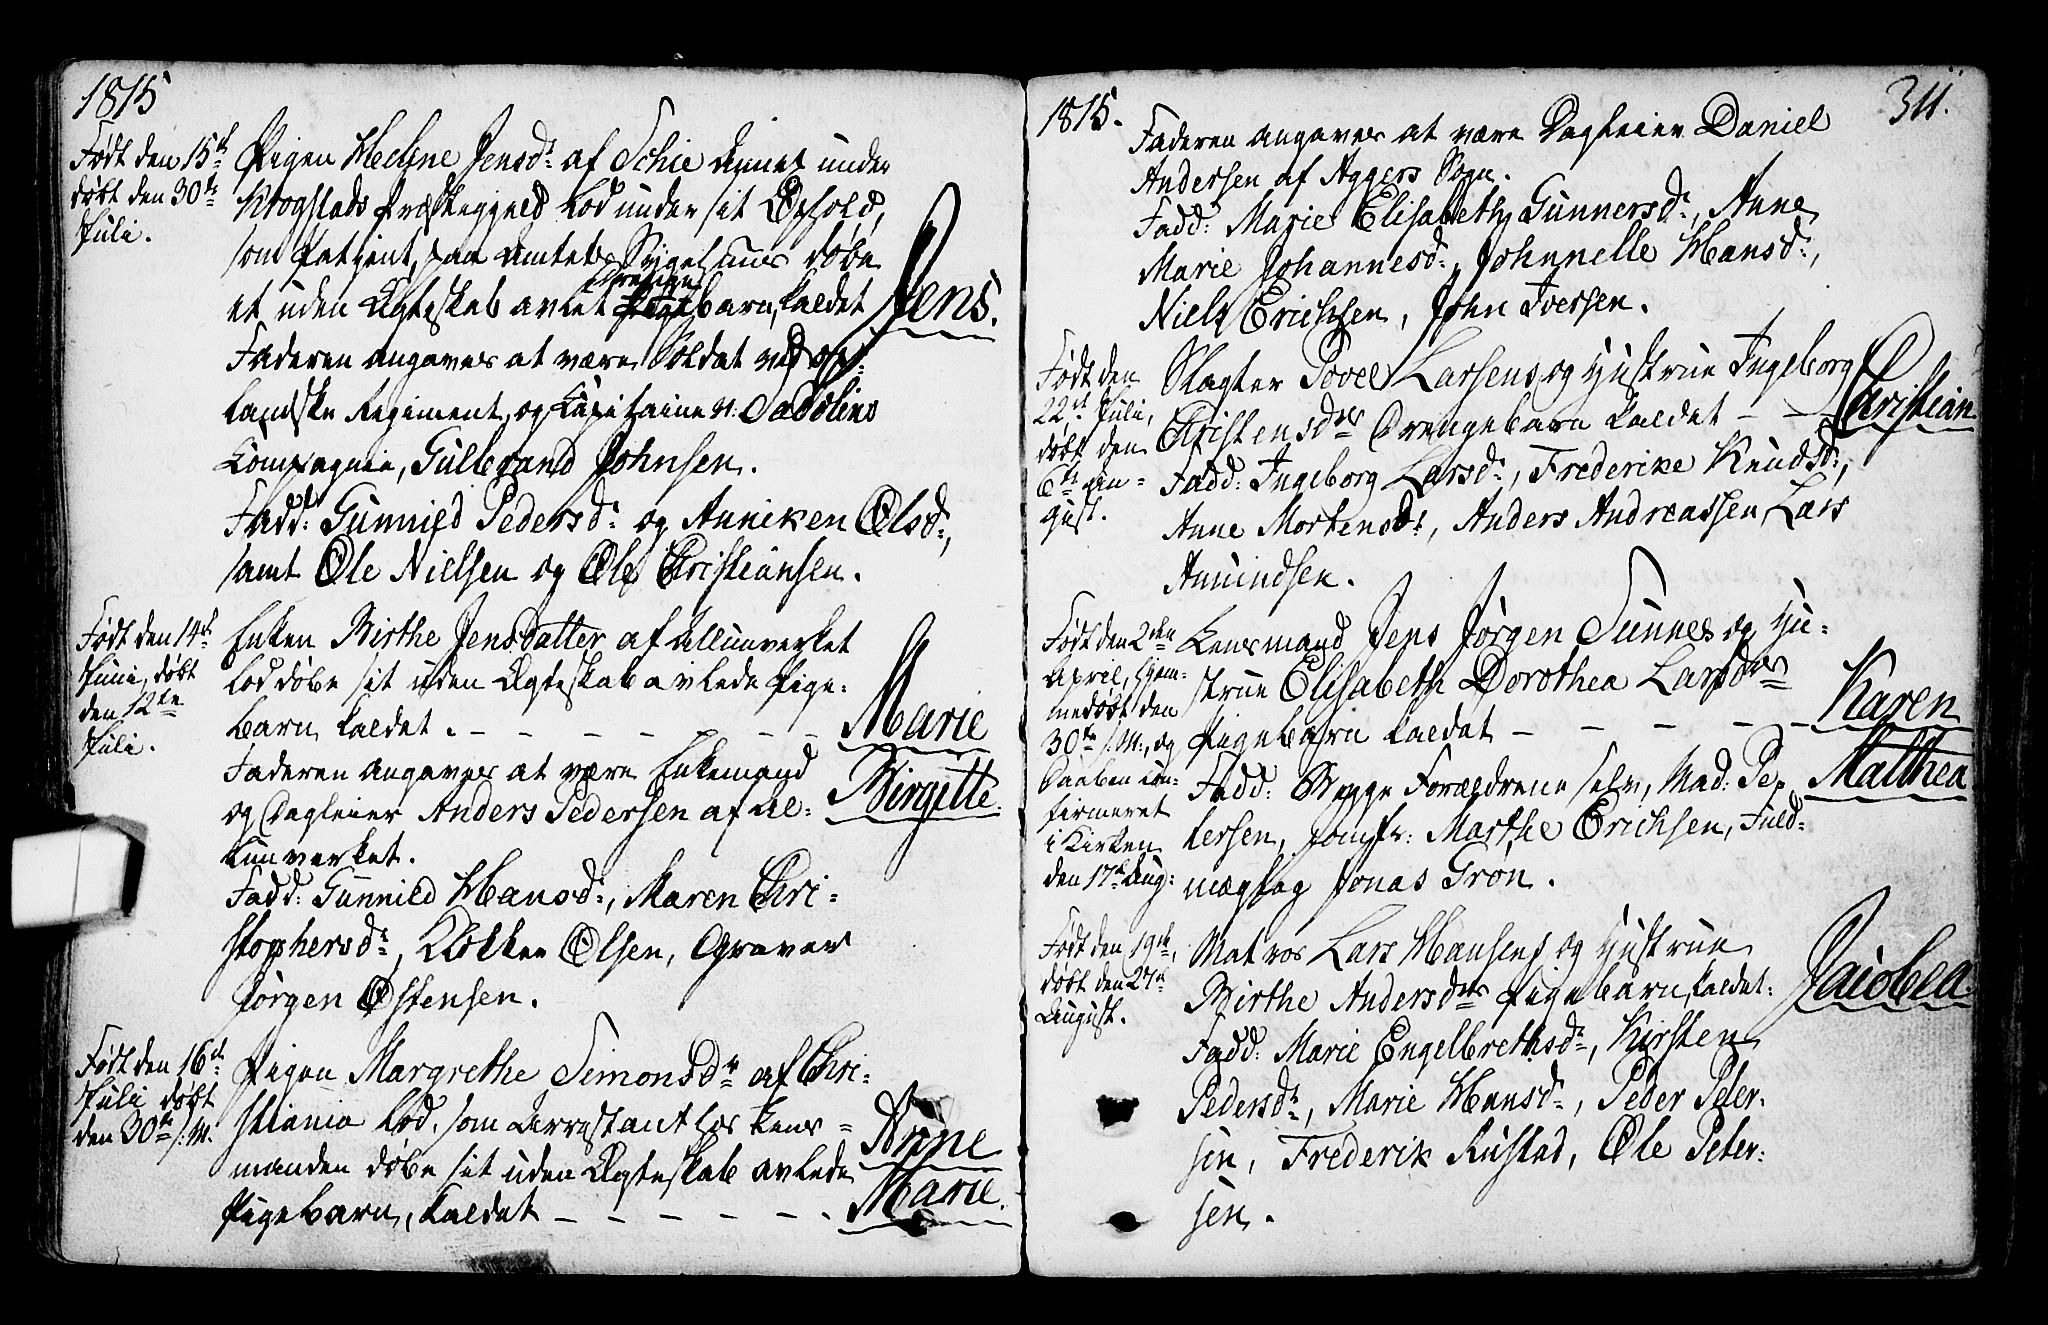 1815
Født den 15de
døbt den 30te
Juli.
Pigen Helene Jensdr. af Schie Annex under
Krogstads Præstegjeld lod under sit Ophold,
som Patient, paa Amtets Sygehuus døbe
Drenge
et uden Ægteskab avlet barn, kaldet
Jens.
Faderen angaves at være Soldat ved op-
landske Regiment og Capitaine v: Sadolins
Compagnie, Gulbrand Johnsen.
Fadd: Gunnild Pedersdr. og Anniken Olsdr.,
samt Ole Nielsen og Ole Christiansen.
Født den 14de
Juni, døbt
den 12te
Juli.
Enken Birthe Jensdatter af Allunverket
lod døbe sit uden Ægteskab avlede Pige-
barn kaldet . - - - - - -
Marie
Birgitte.
Faderen angaves at være Enkemand
og Dagleier Anders Pedersen af Al-
lunverket.
Fadd: Gunnild Hansdr., Maren Chri-
stophersdr., Klokker Olsen, Graver
Jørgen Østensen.
Født den 16de
Juli døbt
den 30te s: M.
Pigen Margrethe Simonsdr. af Chri-
stiania lod, som Arrestant hos Lens-
manden døbe sit uden Ægteskab avlede
Pigebarn, kaldet - - - - - -
Anne
Marie.
1815.
311.
Faderen angaves at være Dagleier Daniel
Andersen af Aggers Sogn.
Fadd: Marie Elisabeth Gunnersdr., Anne
Marie Johannesdr., Johnnelle Hansdr.,
Niels Erichsen, John Iversen.
Født den
22de Juli,
døbt den
6te Au-
gust.
Slagter Povel Larsens og Hustrue Ingeborg
Christensdrs Drengebarn kaldet - -
Christian
Fadd: Ingeborg Larsdr., Frederike Knudsdr.,
Anne Mortensdr., Anders Andreassen, Lars
Amundsen.
Født den 2den
April, hjem-
medøbt den
30te s: M., og
Daaben con-
firmeret
i Kirken
den 17de Aug:
Lensmand Jens Jørgen Sunnes og Hu-
strue Elisabeth Dorothea Larsdrs
Pigebarn kaldet - - - - -
Karen
Mathea
Fadd: Begge Forældrene selv, Mad: Pe-
tersen, Jomfr: Marthe Erichsen, Fuld-
mægtag Jonas Grøn.
Født den 19de,
døbt den 27de
August.
Matros Lars Hansens og Hustrue
Birthe Andersdrs Pigebarn, kaldet:
Jacobea.
Fadd: Marie Engelbrethsdr., Kirsten
Pedersdr., Marie Hansdr., Peder Peter-
sen, Frederik Rustad, Ole Peter-
sen.